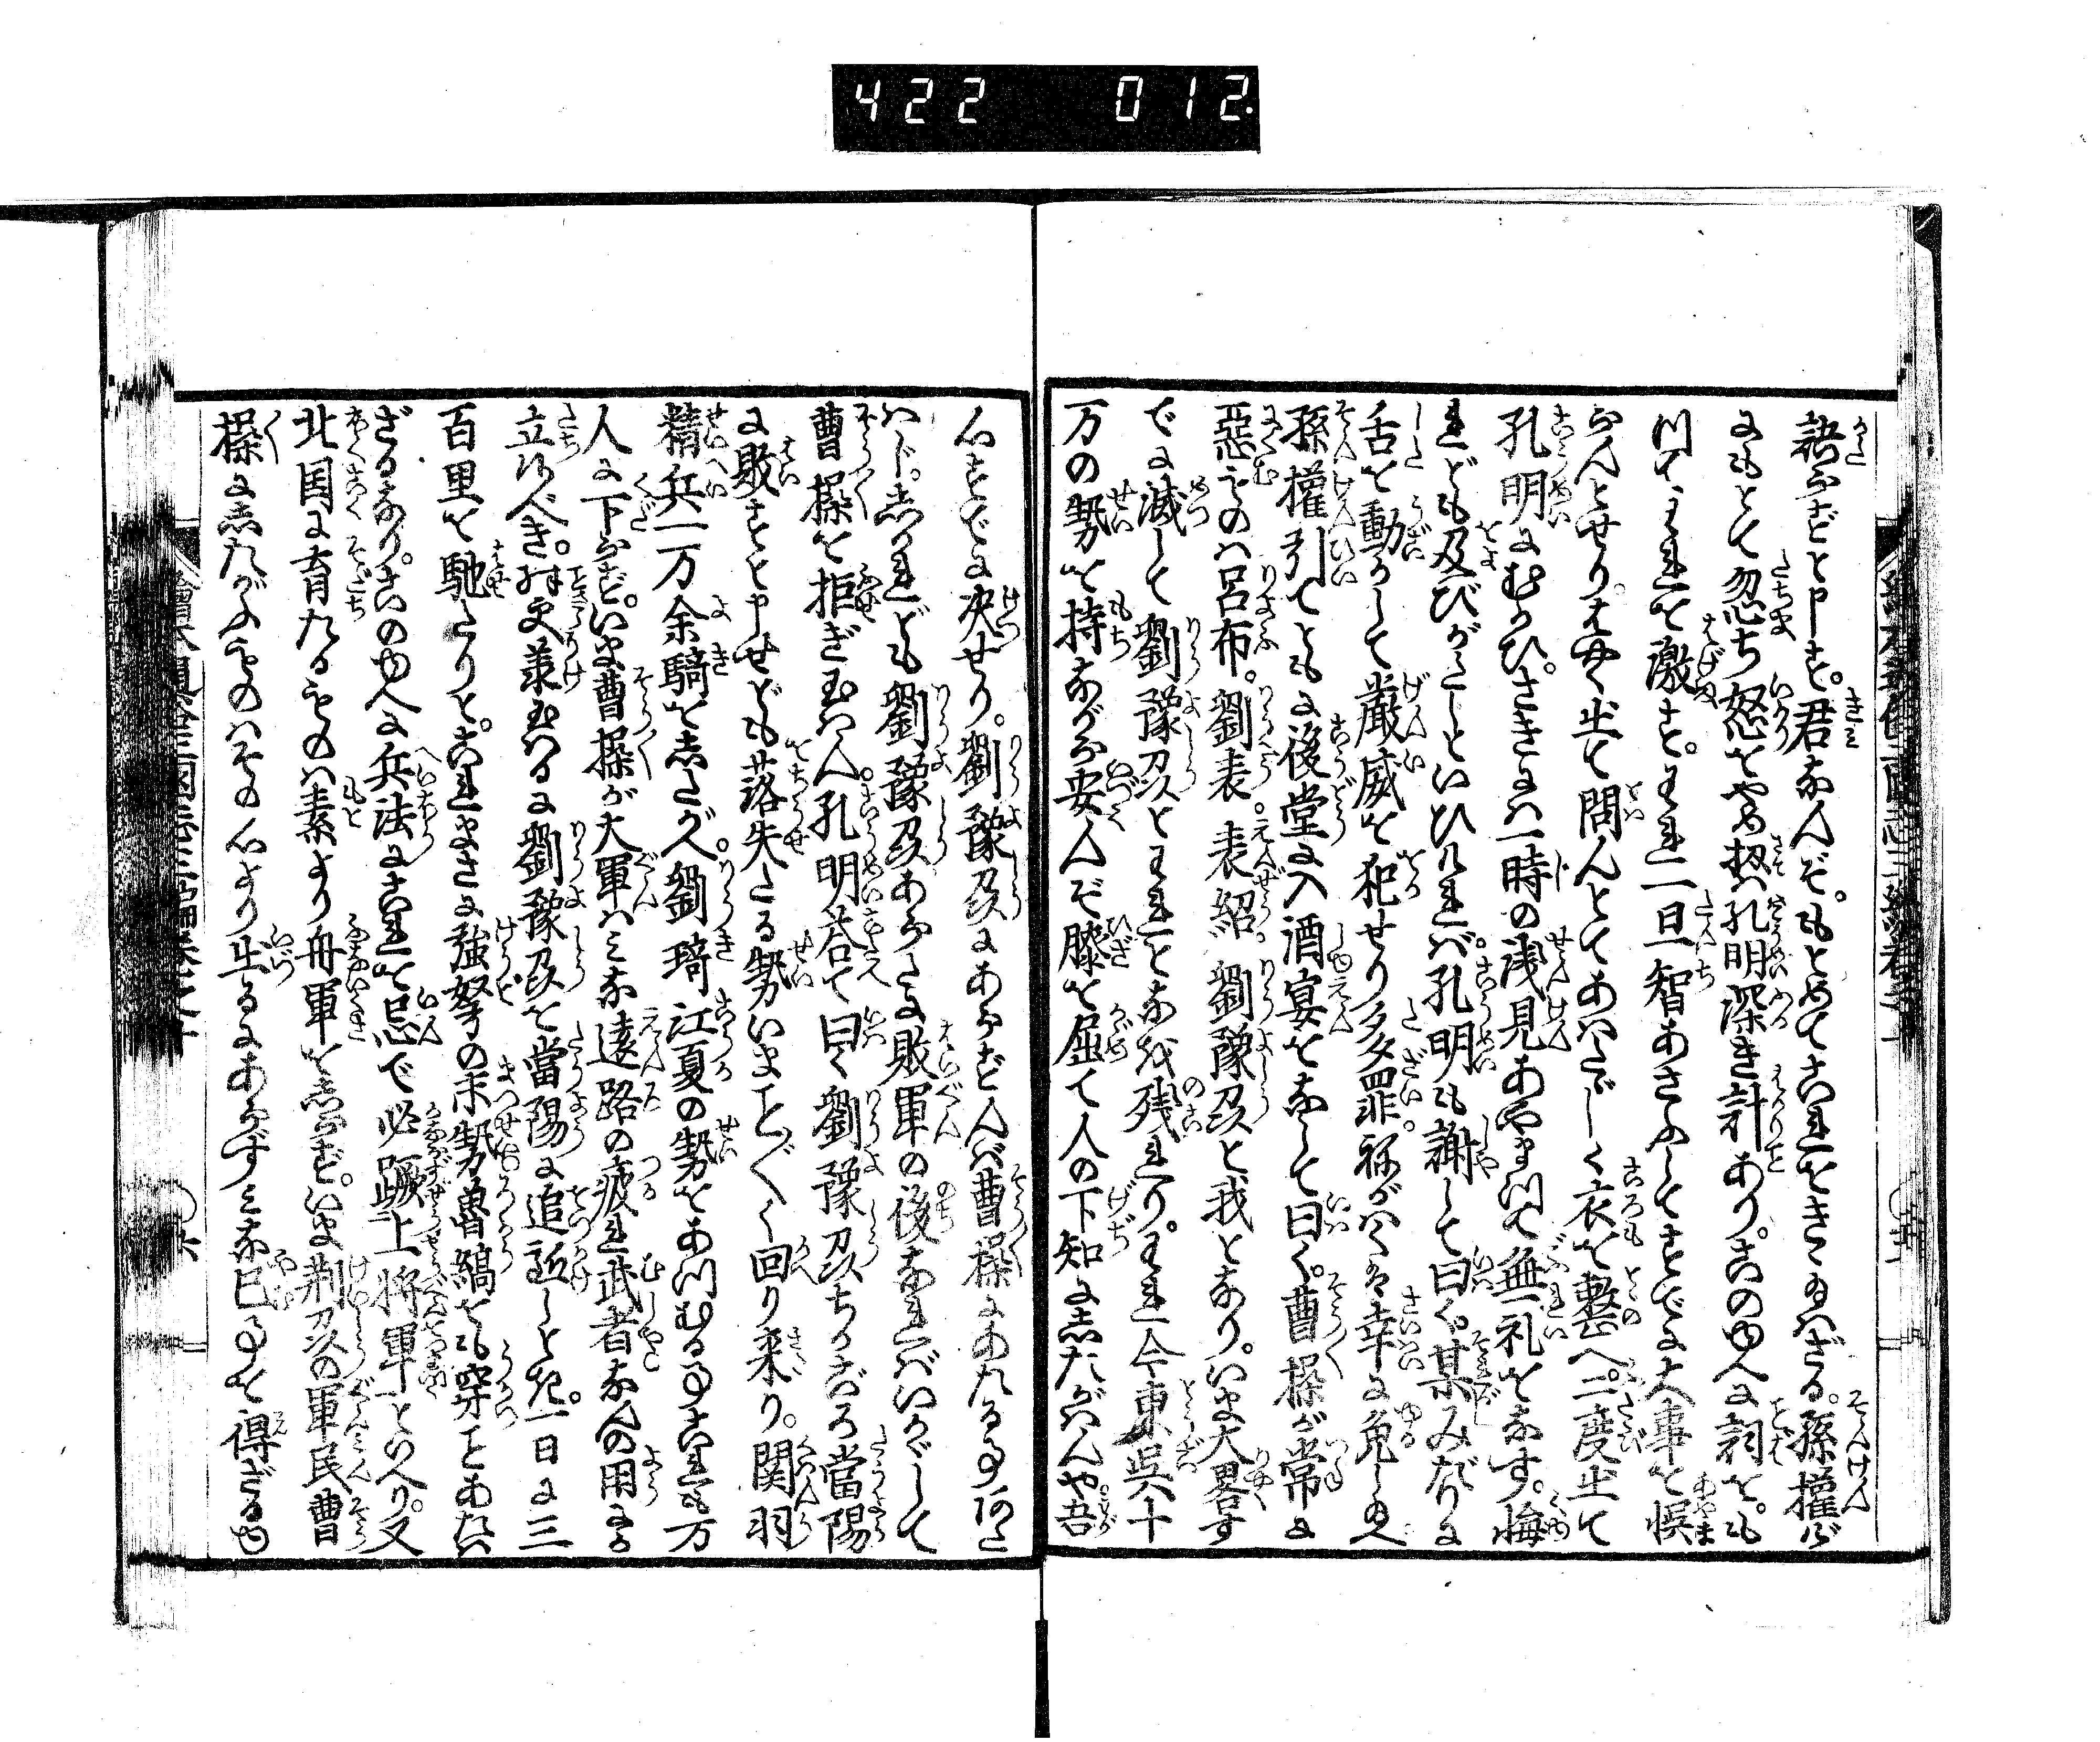 422 012.
語らずと申す。君なんぞ。もとめてこれをきゝ給はざる。孫權が
にもとて忽ち怒をやめ扨ハ孔明深き計あり。このゆへに詞を。も
つて、われを激す。われ一旦智あさふしてすでに大事を悞
らんとせり。はやく出て問んとてあはたゞしく衣を整へ。二度出て
孔明にむかひ。さきにハ一時の浅見あやまつて無礼をなす。悔
れども及びがたしといひけれバ。孔明も謝して曰く。某みだりに
舌を動かして嚴威を犯せり多罪。ねがハくは幸に免し給へ
孫權引てともに後堂に入酒宴をなして曰く。曹操が常に
惡むものハ呂布。劉表。袁紹。劉豫州と我となり。いま大畧す
でに滅して劉豫州とわれとなを残れり。われ今東呉十
万の勢を持ながら安んぞ膝を屈て人の下知にしたがハんや吾
心すでに决せり。劉豫州にあらずんバ曹操にあたる事何と
ハド。しかれども劉豫州あらたに敗軍の後なれバいかゞして
曹操を拒ぎ玉ハん。孔明荅て曰く劉豫州ちかごろ當陽
に敗すと申せども落失たる勢いまことごとく回り来り。関羽
精兵一万余騎をしたがへ。劉琦江夏の勢をあつむる事これも万
人に下らず。いま曹操が大軍ハみな遠路の疲れ武者なんの用にか
立候べき。殊更兼玉はるに劉豫州を當陽に追近しとき。一日に三
百里を馳たりと。これまさに強弩の末勢魯縞をも穿ことあたハ
ざるなり。このゆへに兵法にこれを忌で必蹶上将軍といへり。又
北国に育たるものハ素より舟軍をしらず。いま荆州の軍民曹
操にしたがふものハその心より出るにあらずみな已事を得ざるゆ